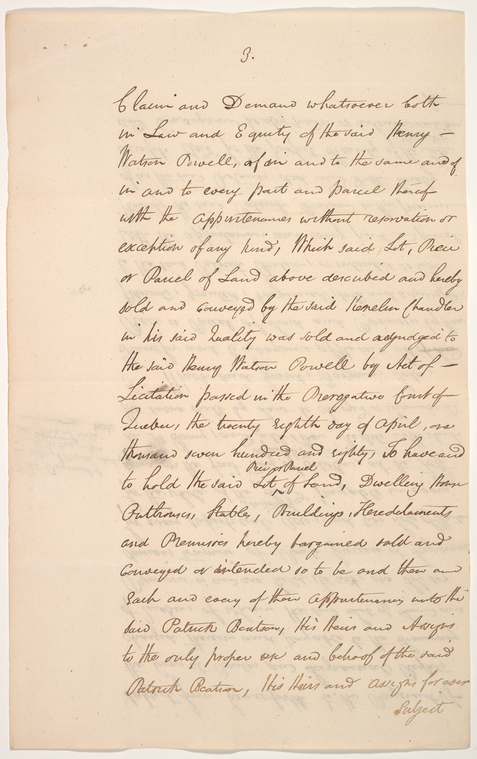 3.
Claim and Demand whatsoever both
in Law and Equity of the said Henry —
Watson Powell, of in and to the same and of
in and to every part and parcel thereof
with the appurtenances without reservation or
exception of any kind, Which said Lot, Piece
or Parcel of Land above described and hereby
sold and conveyed by the said Kenelm Chandler
in his said Quality was sold and adjudged to
the said Henry Watson Powell by Act of —
Licitation passed in the Prerogative Court of
Quebec, the twenty eighth day of April, one
thousand seven hundred and eighty, To have and
Piece or Parcel
to hold the said Lot ^ of Land, Dwelling House
Outhouses, Stables, Buildings, Heredetaments
and Premisses hereby bargained sold and
conveyed or intended so to be and them and
Each and every of their appurtenances unto the
said Patrick Beatson, His Heirs and Assigns
to the only proper use and behoof of the said
Patrick Beatson, His Heirs and assigns for ever
Subject